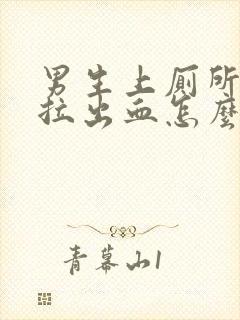 男生上厕所
拉出血怎麼
青幕山1